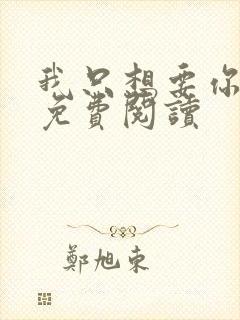 我只想要你
免費閱讀
鄭旭東